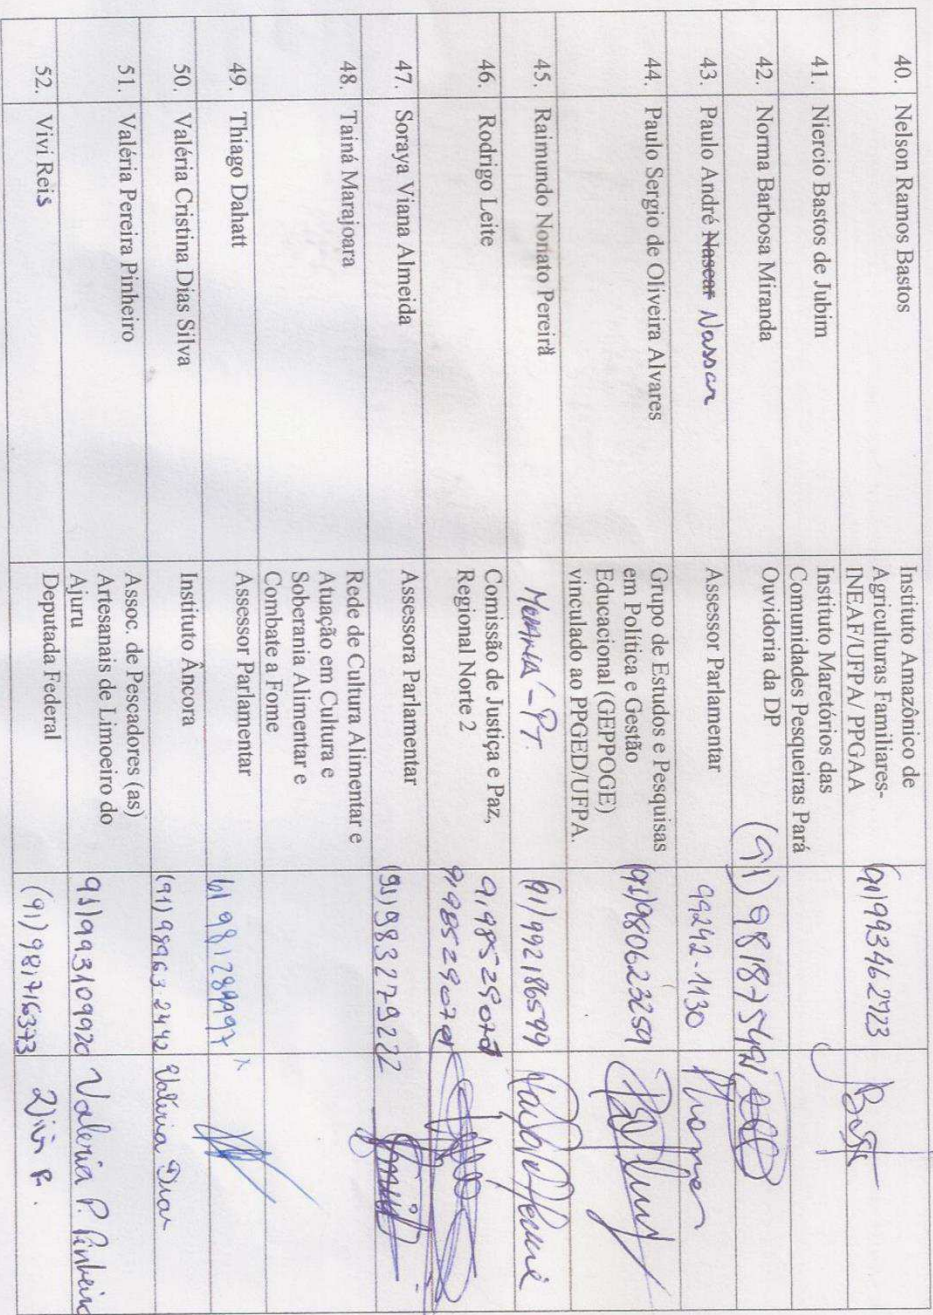 40. Nelson Ramos Bastos
Instituto Amazônico de
Agriculturas Familiares-
INEAF/UFPA/ PPGAA
(91)993462723
41. Niercio Bastos de Jubim
Instituto Maretórios das
Comunidades Pesqueiras Pará
42. Norma Barbosa Miranda
Ouvidoria da DP
(91) 981875491
43. Paulo André Nascar Nassar
Assessor Parlamentar
99242-1130
44. Paulo Sergio de Oliveira Alvares
Grupo de Estudos e Pesquisas
em Política e Gestão
Educacional (GEPPOGE)
vinculado ao PPGED/UFPA.
(91)980623259
45. Raimundo Nonato Pereira
-PT.
(91)992186599
46. Rodrigo Leite
Comissão de Justiça e Paz,
Regional Norte 2
91985290701
47. Soraya Viana Almeida
Assessora Parlamentar
(91)983279222
48. Tainá Marajoara
Rede de Cultura Alimentar e
Atuação em Cultura e
Soberania Alimentar e
Combate a Fome
49. Thiago Dahatt
Assessor Parlamentar
61 981289997 x
50. Valéria Cristina Dias Silva
Instituto Âncora
(91) 98963-2442
Valéria Dias
51. Valéria Pereira Pinheiro
Assoc. de Pescadores (as)
Artesanais de Limoeiro do
Ajuru
91)993109920
Valeria P. Pinheiro
52. Vivi Reis
Deputada Federal
(91) 981716373
Vivi R.